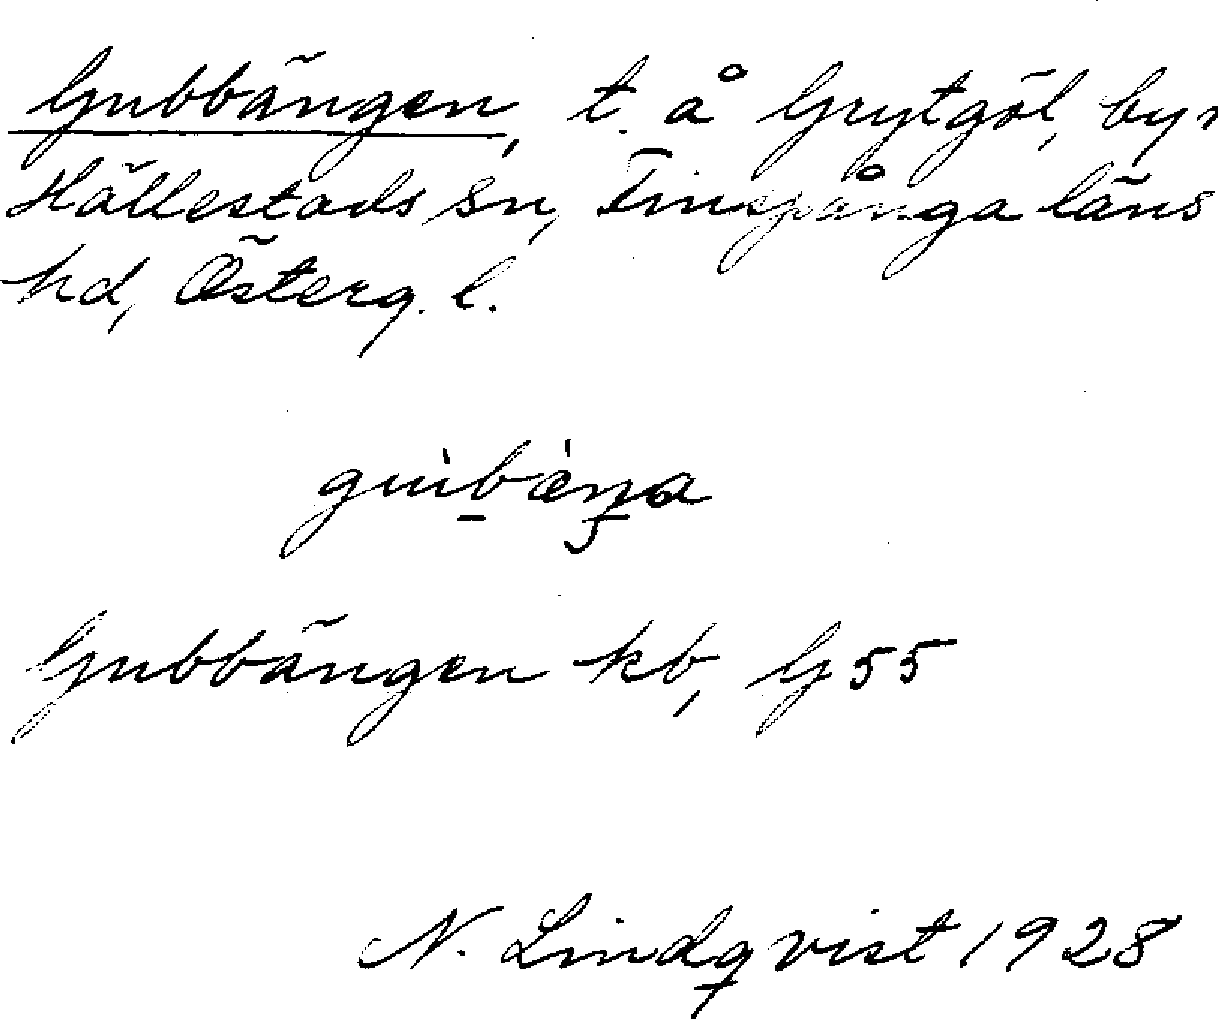 Gubbängen, t. å Grytgöl, byn
Hällestads sn, Finspånga läns
hd, Österg. l.
Gubbängen kb, G 55
N. Lindqvist 1928